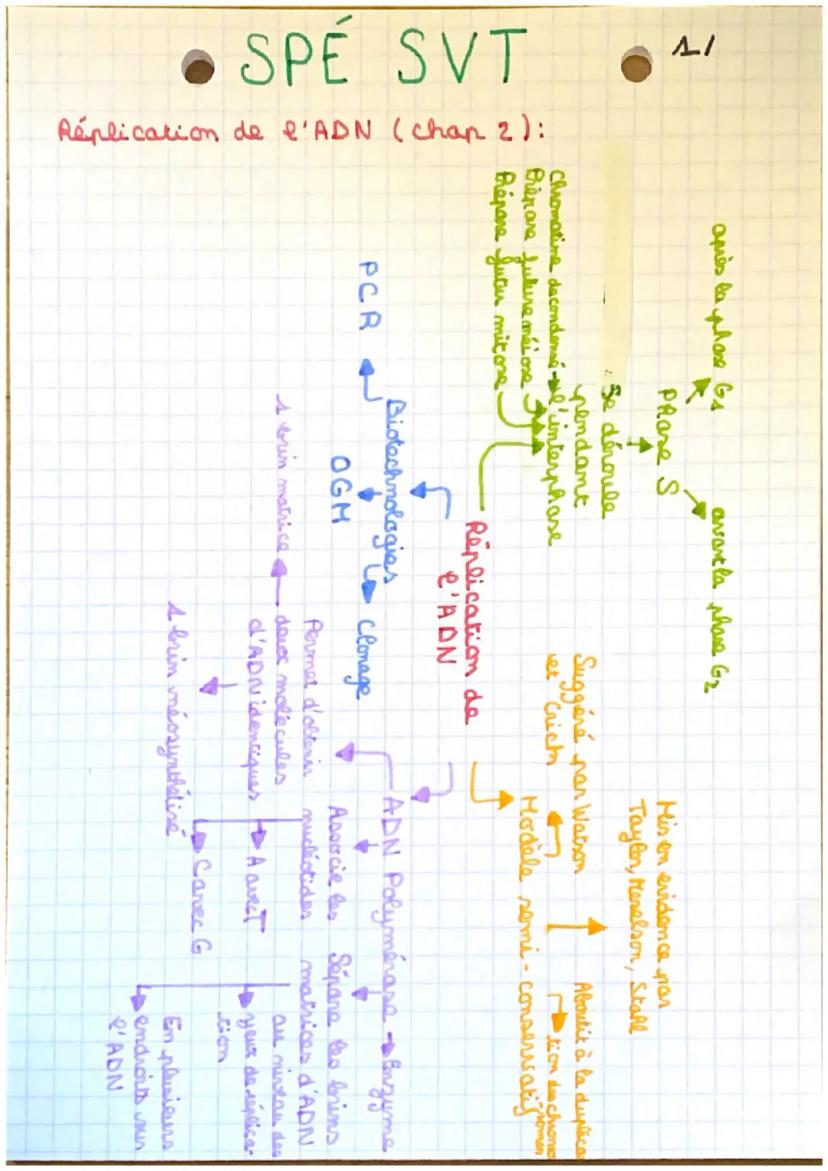 SPÉ SVT
1/
Réplication de l'ADN (chap 2):
après la phase G1
avant la phase G2
Phase S
Se déroule
pendant
l'interphase
Chromatine decondensé
Prépare future méiose
Prépare futur mitose
Réplication de
l'ADN
Biotechnologies
PCR
OGM
Clonage
Mis en evidence par
Taylor, Meselson, Stahl
Suggéré par Watson
et Crick
Aboutit à la duplica
tion des chromo
somes
Modèle semi-conservatif
ADN Polymérase
Enzyme
Permet d'obtenir
deux molécules
d'ADN identiques
1 brin matrice
1 brin néosynthétisé
Associe les
nucléotides
A avec T
C avec G
Sépare les brins
matrices d'ADN
au niveau des
yeux de réplica-
tion
En plusieurs
endroits sur
l'ADN